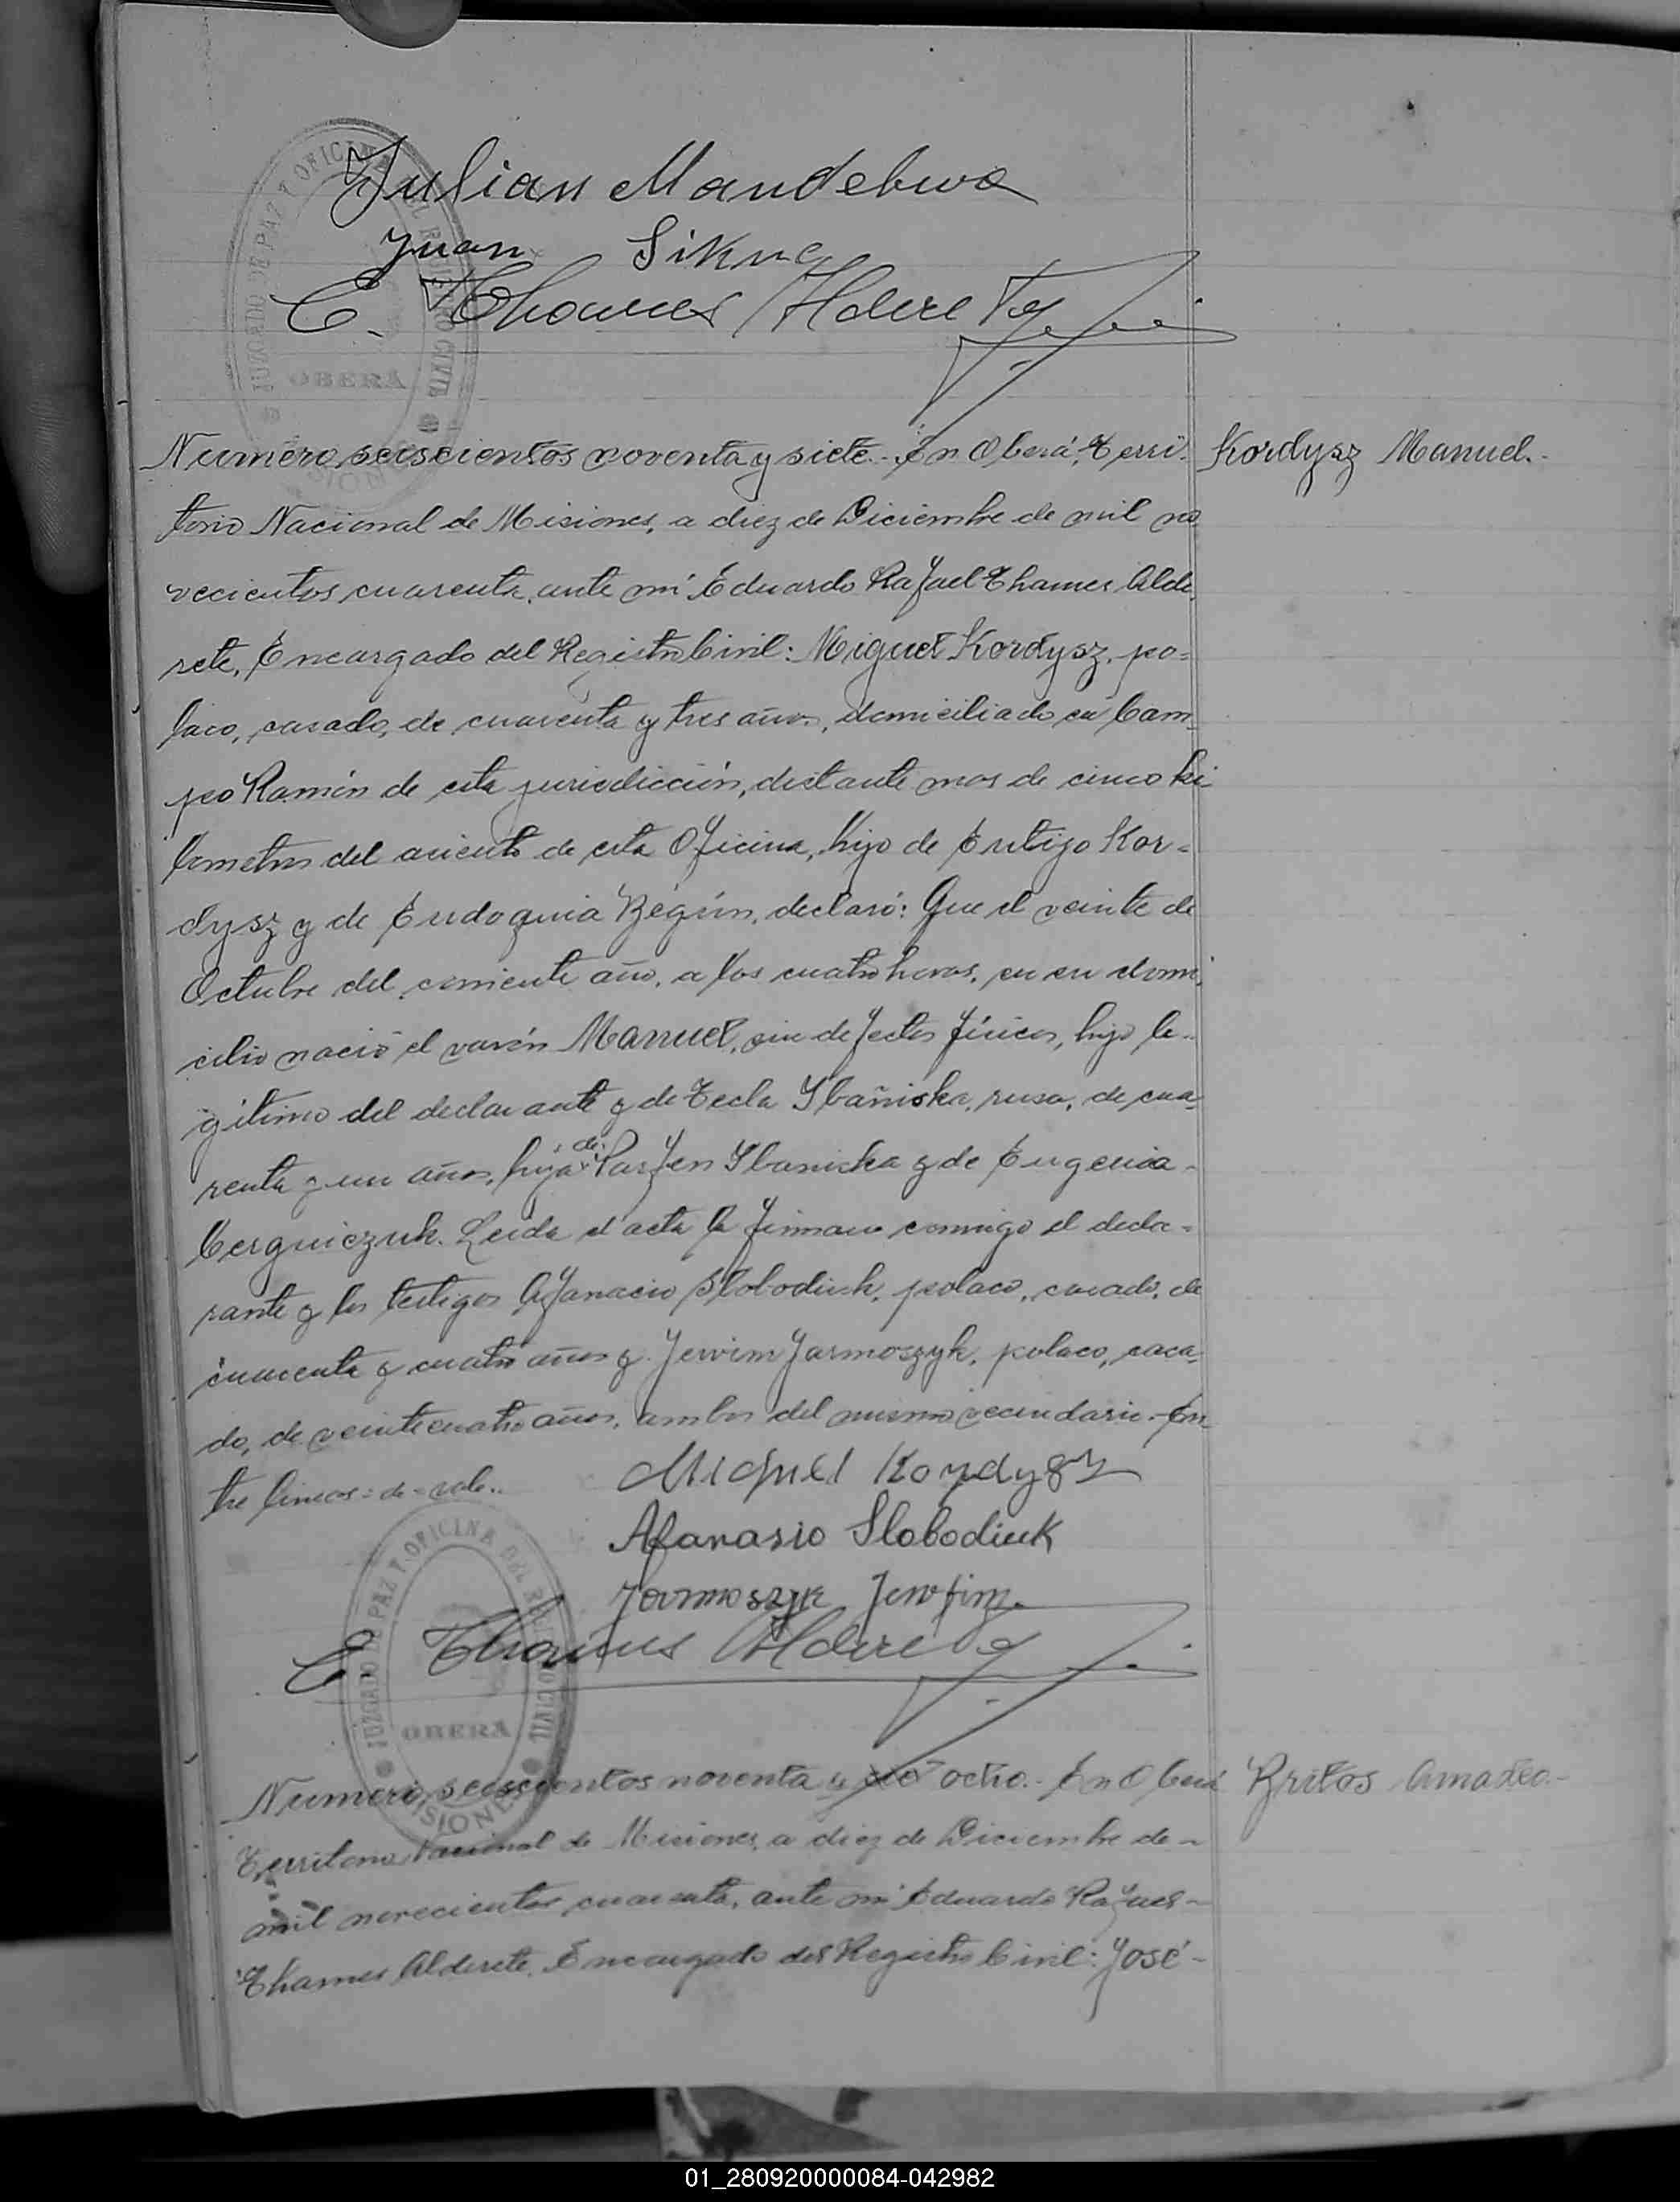 Julian Mandebura
Juan Sikne
E. Thames Alderete
JUZGADO DE PAZ Y OFICINA DEL REGISTRO CIVIL
OBERA
MISIONES
Numero seiscientos noventa y siete.- En Oberá, Terri- Kordysz Manuel.-
torio Nacional de Misiones, a diez de Diciembre de mil no
vecientos cuarenta, ante mi Eduardo Rafael Thames Alde
rete, Encargado del Registro Civil: Miguel Kordysz, po=
laco, casado, de cuarenta y tres años, domiciliado en Cam-
po Ramón de esta jurisdicción, distante mas de cinco ki-
lometros del asiento de esta Oficina, hijo de Eutigo Kor=
dysz y de Eudoquia Bégún, declaró: Que el veinte de
Octubre del corriente año, a las cuatro horas, en su domi-
cilio nació el varón Manuel, sin defectos físicos, hijo le-
gitimo del declarante y de Tecla Ybañiska, rusa, de cua-
renta y un años, hija de Parfen Ybaniska y de Eugenia-
Cerguiczuk. Leida el acta la firman conmigo el decla=
rante y los testigos Afanacio Slobodiuk, polaco, casado, de
cuarenta y cuatro años y Jervim Jarmoszyk, polaco, casa-
do, de veinticuatro años, ambos del mismo vecindario.-En
tre lineas=de=vale..
Miguel Kordysz
Afanasio Slobodiuk
Jarmoszyk Jewfim.
E. Thames Alderete
JUZGADO DE PAZ Y OFICINA DEL REGISTRO CIVIL
OBERA
MISIONES
Numero seiscientos noventa y ocho.- En Oberá Britos Amadeo.-
Territorio Nacional de Misiones, a diez de Diciembre de-
mil novecientos cuarenta, ante mi Eduardo Rafael-
Thames Alderete, Encargado del Registro Civil: José-
01_280920000084-042982